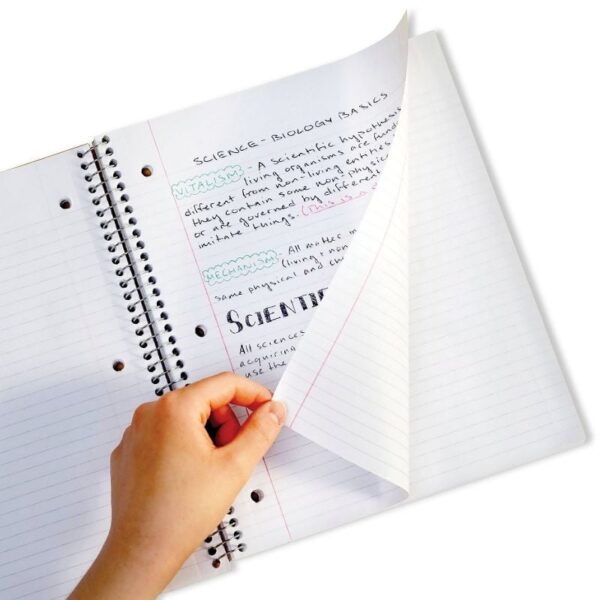 SCIENCE - BIOLOGY BASICS
VITALISM - A scientific hypothesis
living organisms are
different from non-living entities
they contain some non-physical
or are governed by different
imitate things. (This is a
MECHANISM - All matter
(living + non
same physical and
SCIENTIF
All sciences
acquiring
use the